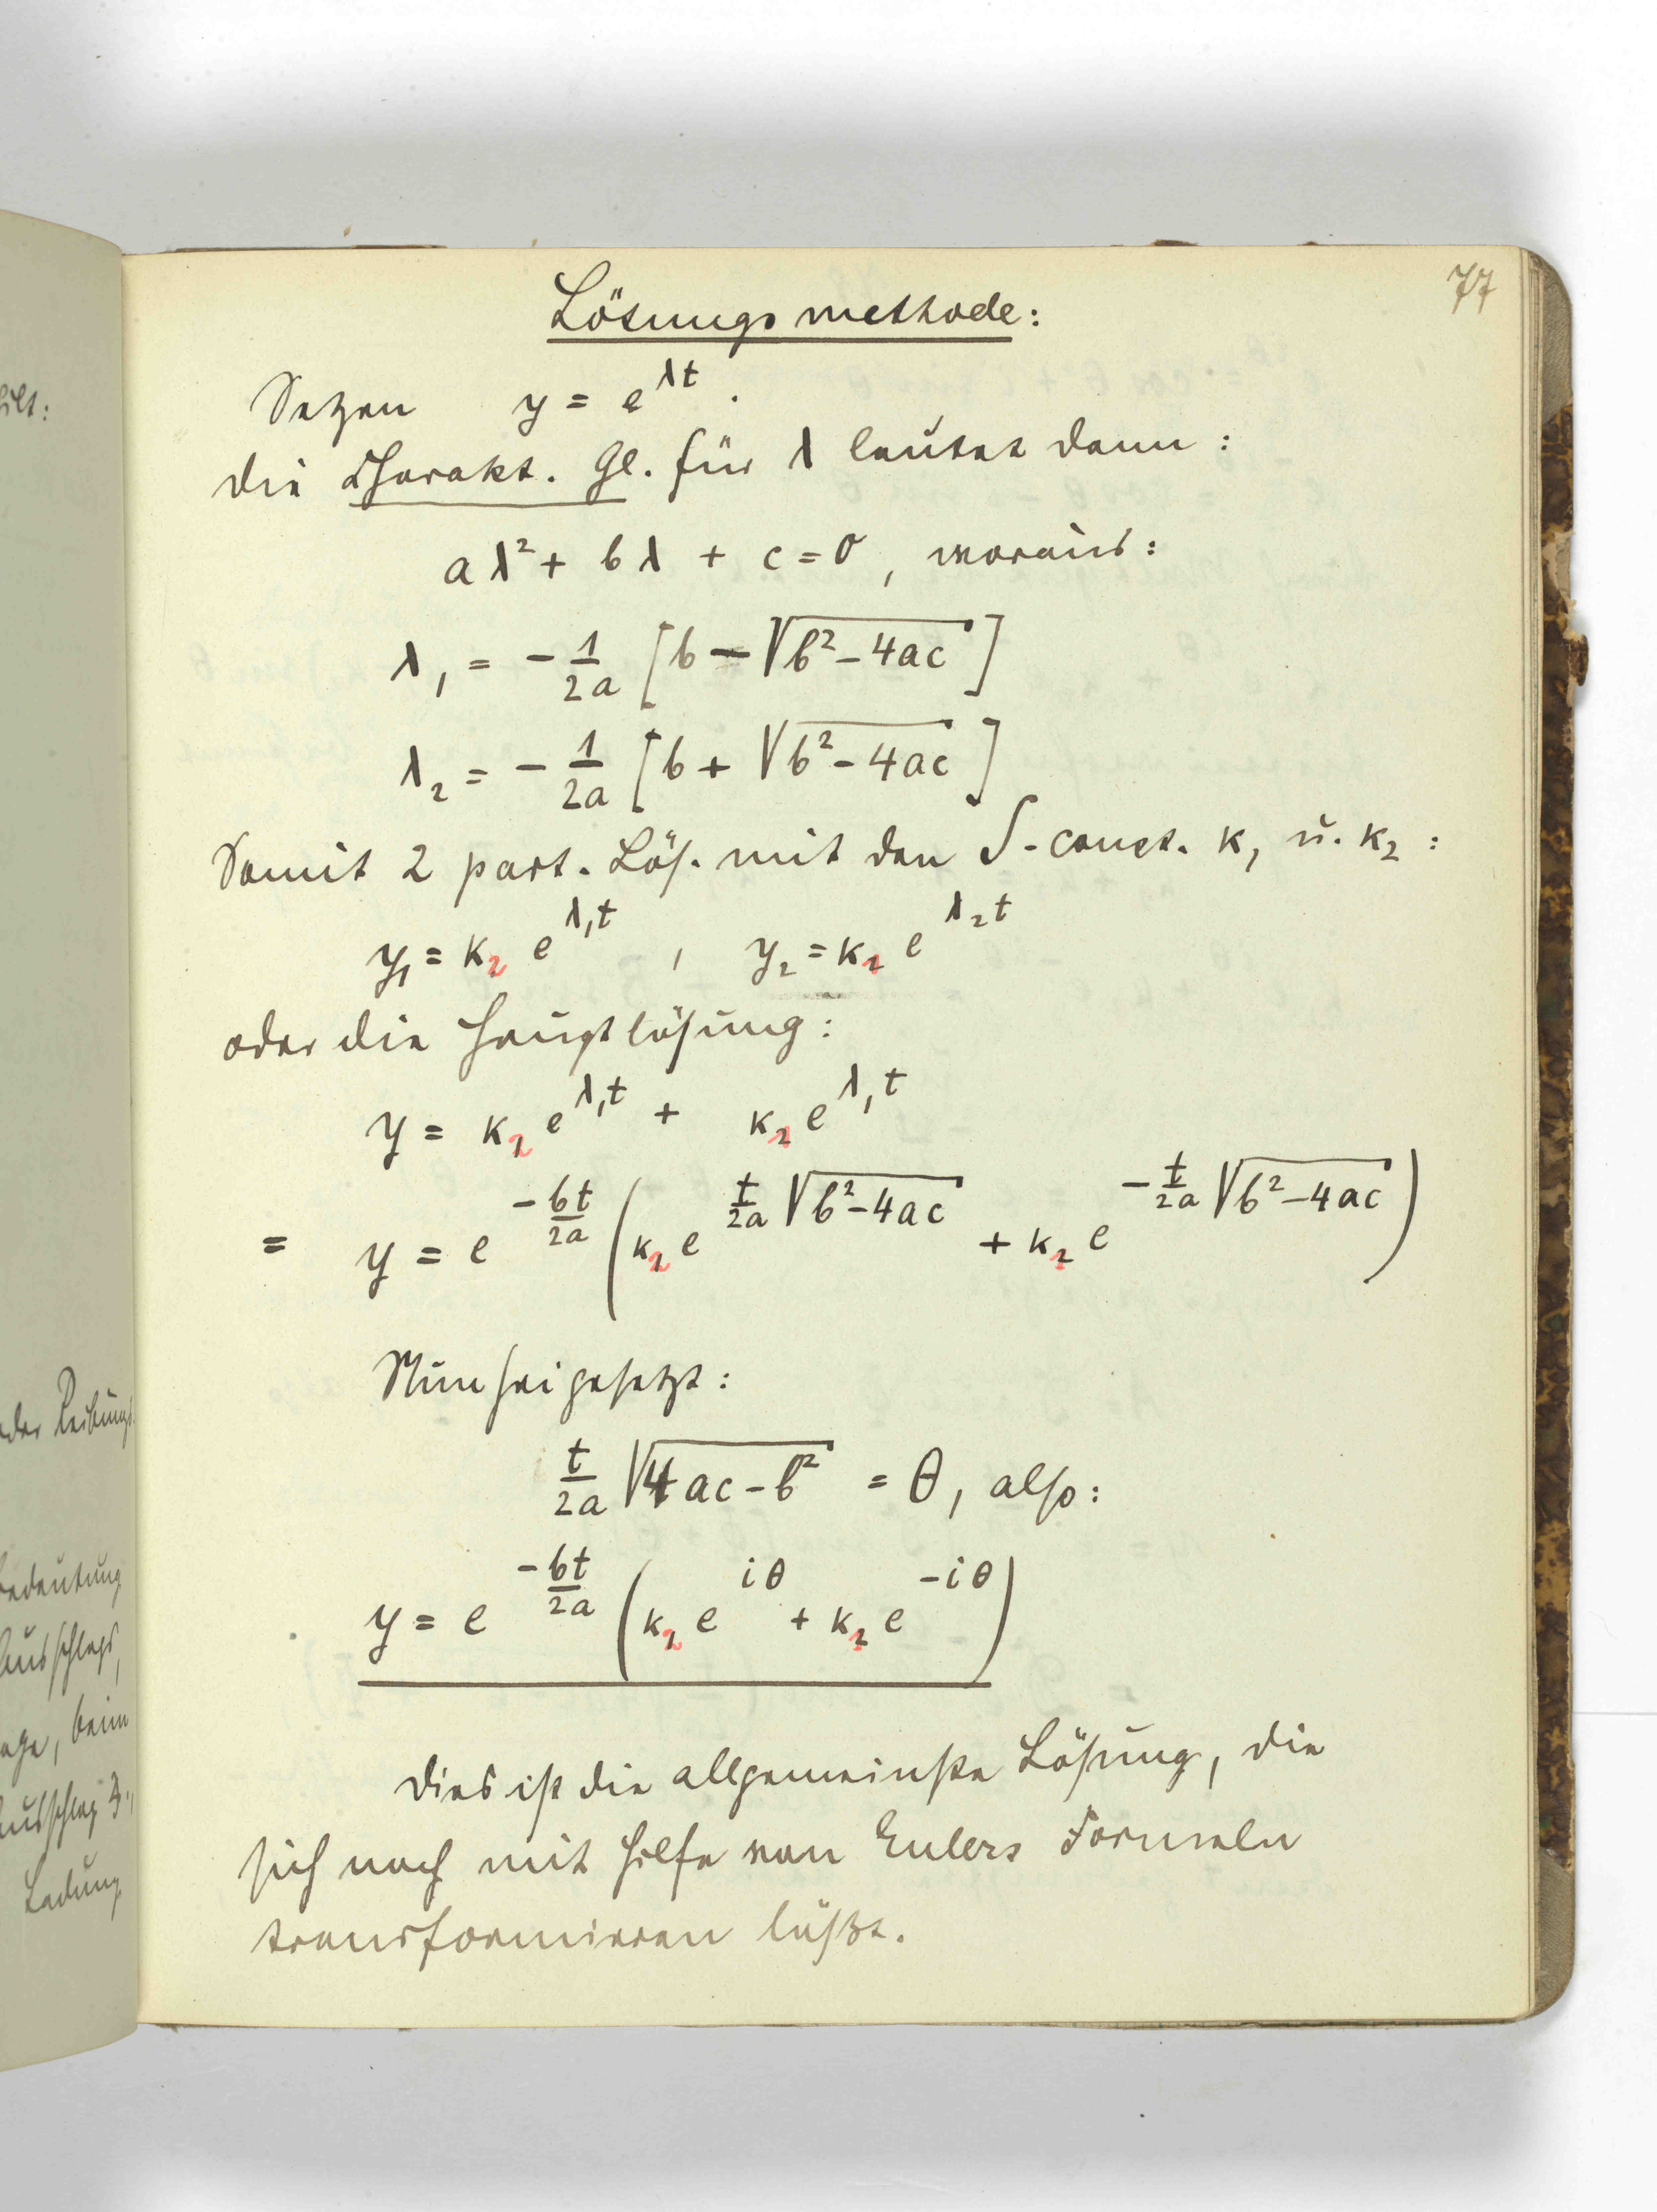 77
Lösungsmethode:
Setzen y = e^{λt}.
Die Charakt. Gl. für λ lautet dann:
aλ² + bλ + c = 0, woraus:
λ₁ = - 1/2a [b - √(b² - 4ac)]
λ₂ = - 1/2a [b + √(b² - 4ac)]
Somit 2 part. Lös. mit den ∫-const. k₁ u. k₂:
y₁ = k₂ e^{λ₁t} , y₂ = k₁ e^{λ₂t}
oder die Hauptlösung:
y = k₂ e^{λ₁t} + k₁ e^{λ₁t}
= y = e^{-bt/2a} (k₂ e^{t/2a √(b² - 4ac)} + k₁ e^{-t/2a √(b² - 4ac)})
Nun sei gesetzt:
t/2a √(4ac - b²) = θ, also:
y = e^{-bt/2a} (k₂ e^{iθ} + k₁ e^{-iθ})
Dies ist die allgemeinste Lösung, die
sich noch mit Hilfe von Eulers Formeln
transformieren läßt.
oder Reibungs
Bedeutung
Ausschlags,
beim
Ausschlag
Ladung